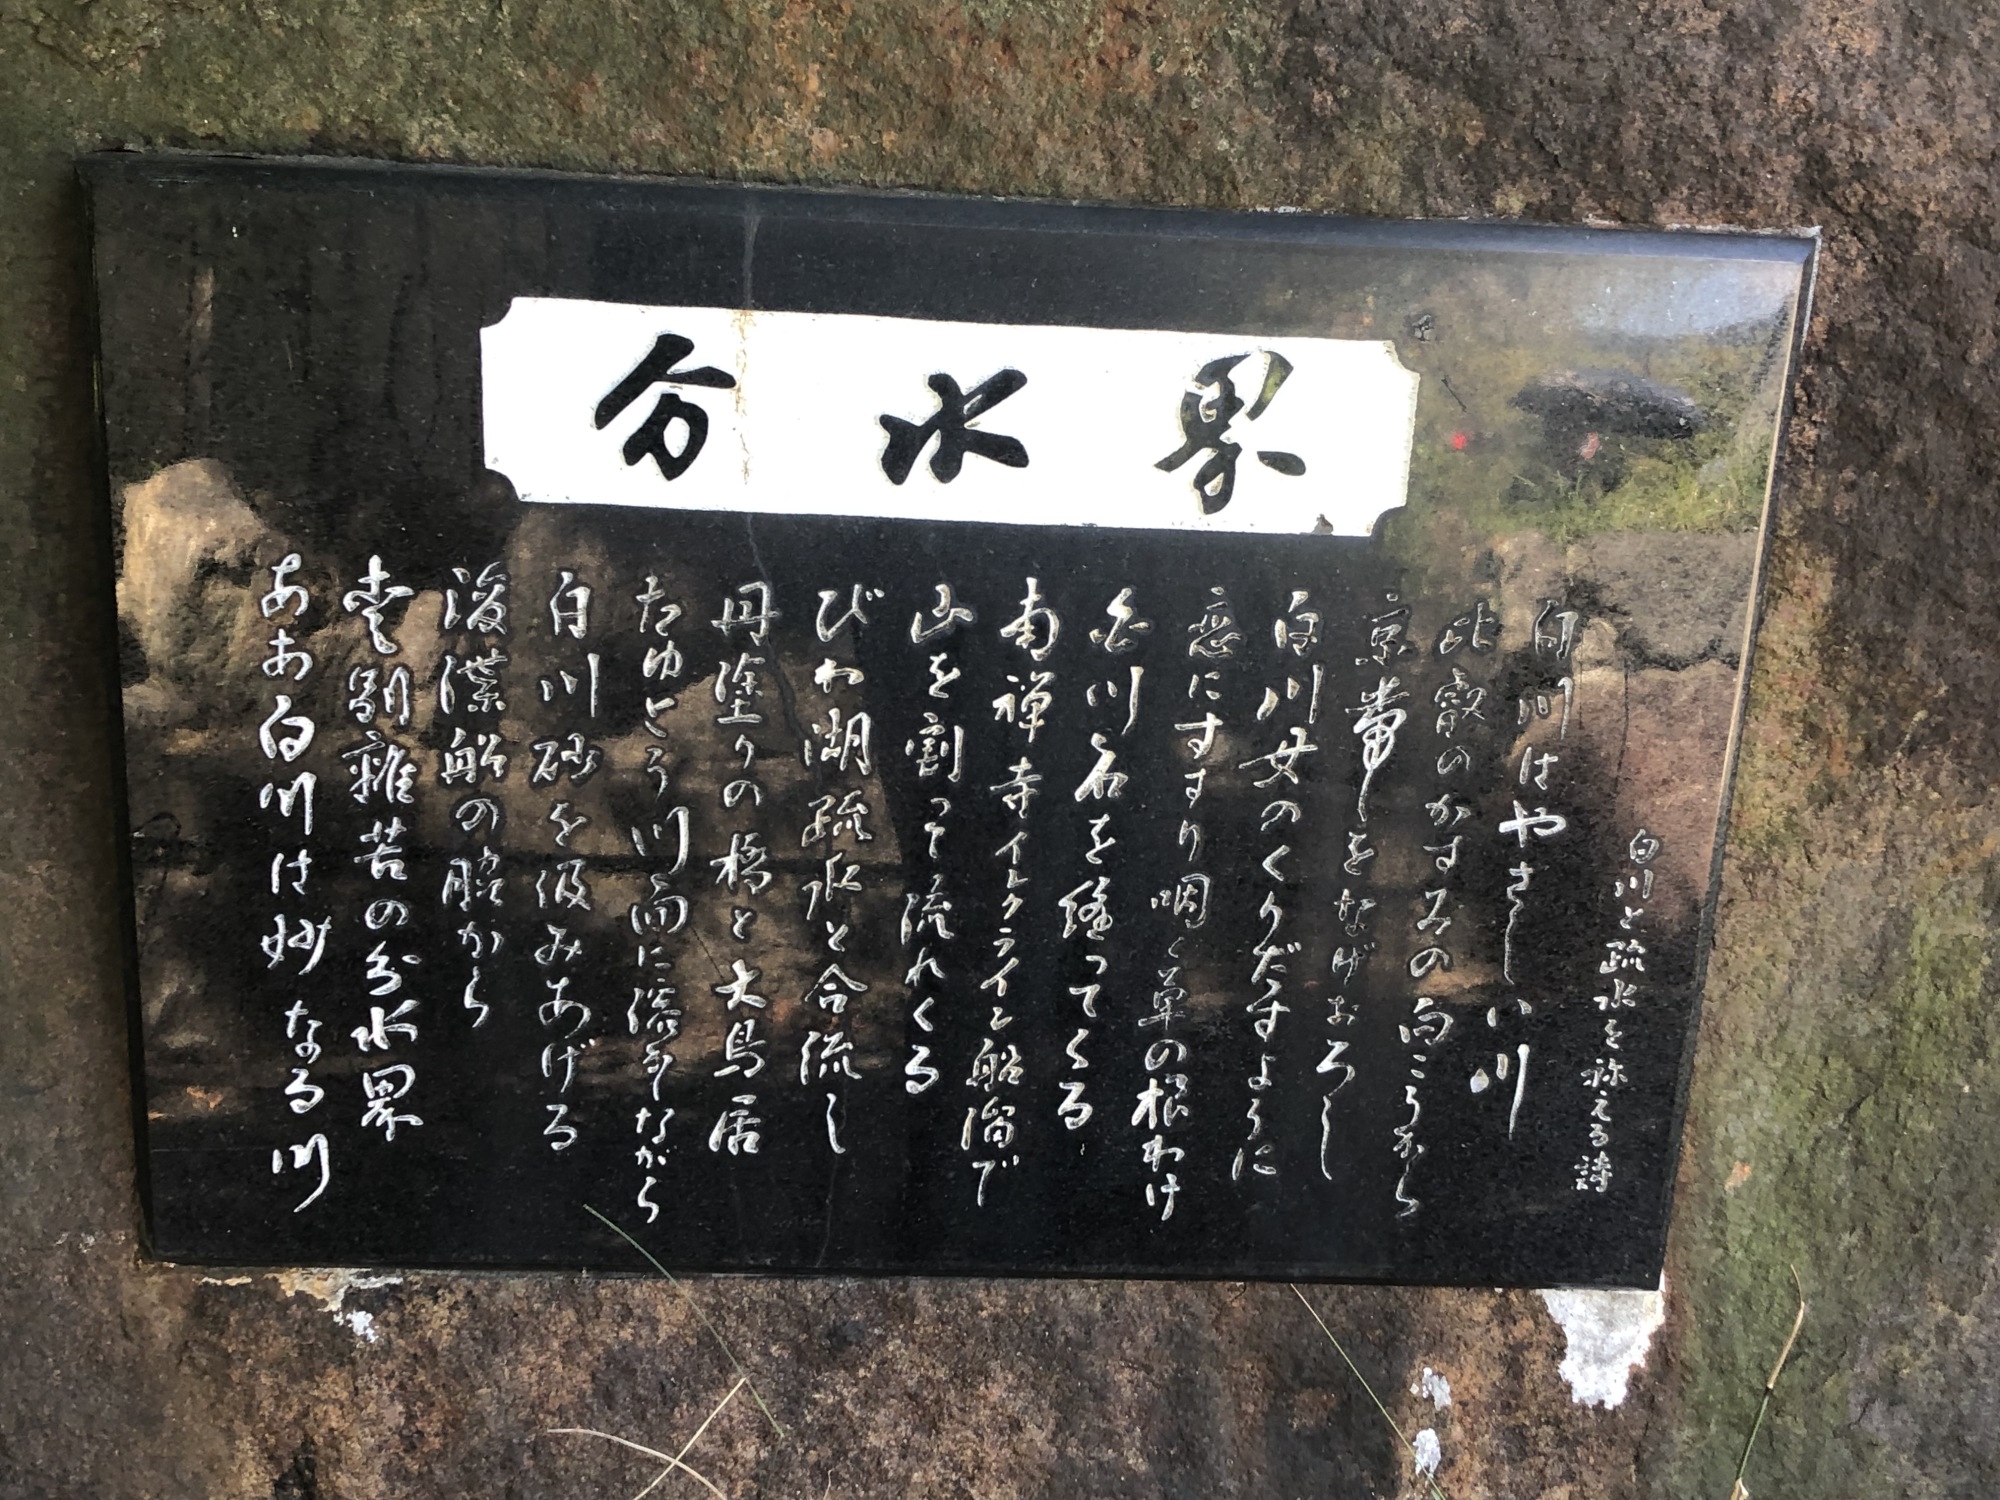 分水界
白川と疏水を称える詩
白川はやさしい川
比叡のかすみの向こうから
京帯しをなげおろし
白川女のくりだすように
恋にすすり咽く草の根わけ
白川石を縫ってくる
南禅寺インクライン船溜で
山を割って流れくる
びわ湖疏水と合流し
丹塗りの橋と大鳥居
たゆとう川面に浮べながら
白川砂を汲みあげる
浚渫船の脇から
愛別離苦の分水界
ああ白川は妙なる川